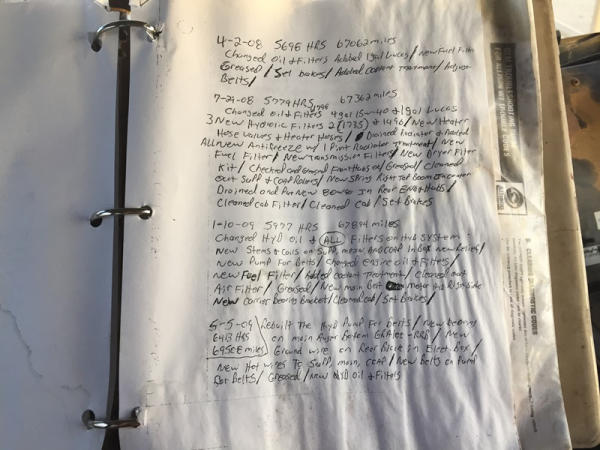 4-2-08 5695 HRS 67062 miles
Changed oil & Filters Added 1gal Lucas / New Fuel Filter
Greased / Set brakes / Added coolant treatment / Adjust
Belts /
7-29-08 5779 HRS 67362 miles
Changed oil & Filters 4gal 15w-40 & 1gal Lucas
3 New Hydrolic Filters 2 (1735) & 1496 / New Heater
Hose valves & Heater Hoses / Drained Radiator & Added
All New Antifreeze w/ 1 Pint Radiator treatment / New
Fuel Filter / New transmission Filters / New Dryer Filter
Kit / Checked and Greased Front Hubs / Greased / Cleaned
out Supp & Rollers / New spring Right
Drained and Put New 80w90 In Rear End & Hubs /
Cleaned cab Filter / Cleaned cab / Set brakes
1-10-09 5977 HRS 67894 miles
Changed Hyd oil & ALL Filters on Hyd System
New Stems & Coils on Supp, main and
New Pump For Belts / Changed engine oil & Filters /
new Fuel Filter / Added coolant treatment / Cleaned out
Air Filter / Greased / New main Belt motor Right side
New carrier bearing Bracket / Cleaned cab / Set brakes /
5-5-09 Rebuilt The Hyd Pump For Belts / New bearing
6413 HRS on main / New
69508 miles Ground wire on Rear Block in Elect Box /
New Hot wires To Supp, main, / New belts on Pump
For Belts / Greased / New Hyd oil & Filters